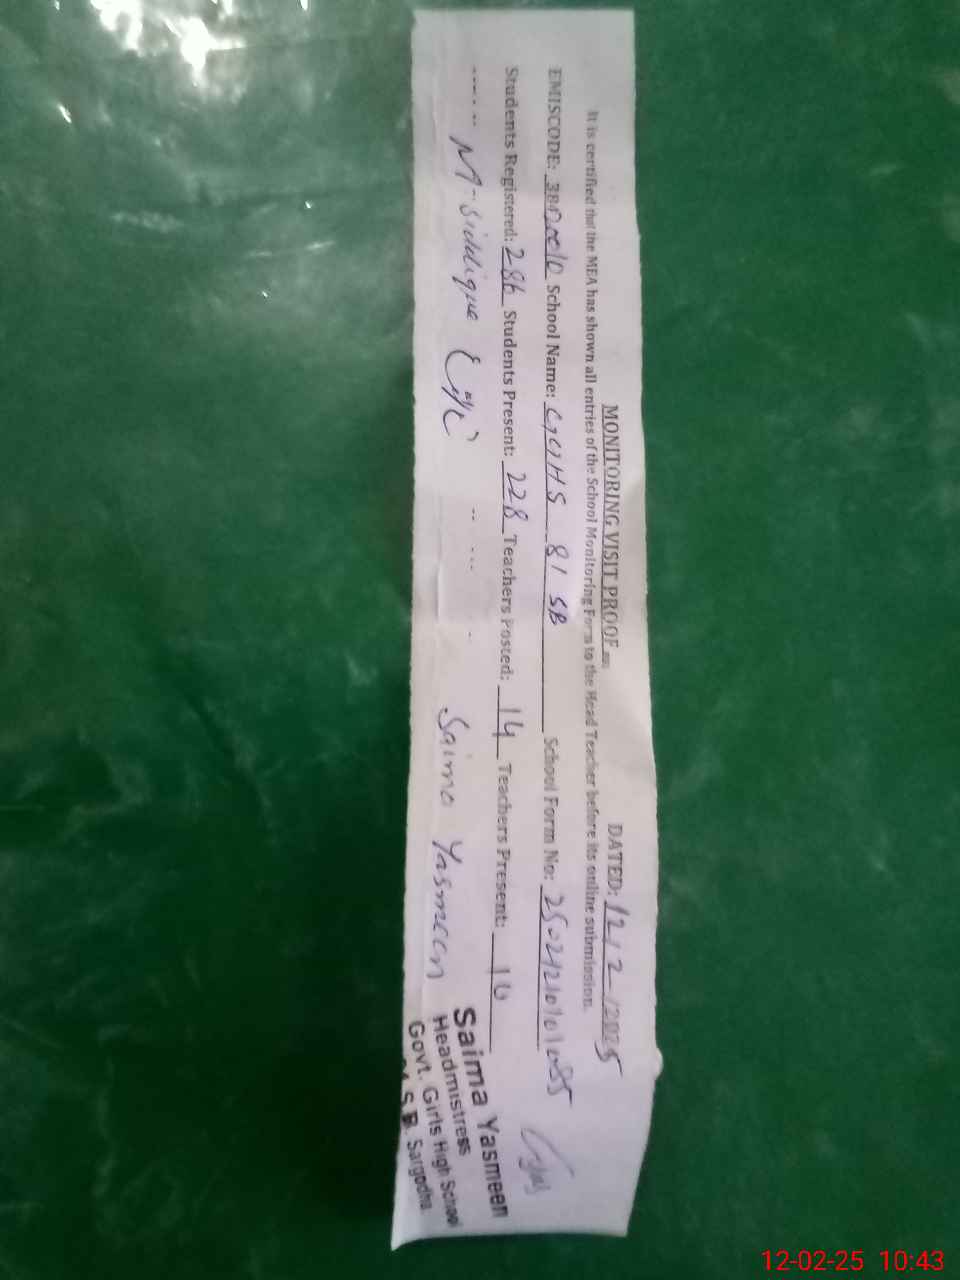 MONITORING VISIT PROOF
DATED: 12/2/2025
It is certified that the MEA has shown all entries of the School Monitoring Form to the Head Teacher before its online submission.
EMISCODE: School Name: GGHS 81 SB School Form No:
Students Registered: 286 Students Present: 228 Teachers Posted: 14 Teachers Present:
M-Siddique Saima Yasmeen
Saima Yasmeen
Headmistress
Govt. Girls High School
S.B. Sargodha
12-02-25 10:43